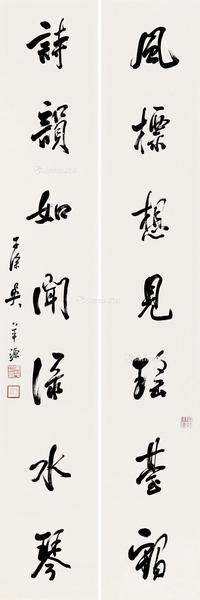 風標想見瑤臺鶴
詩韻如聞淥水琴
子深吳華源